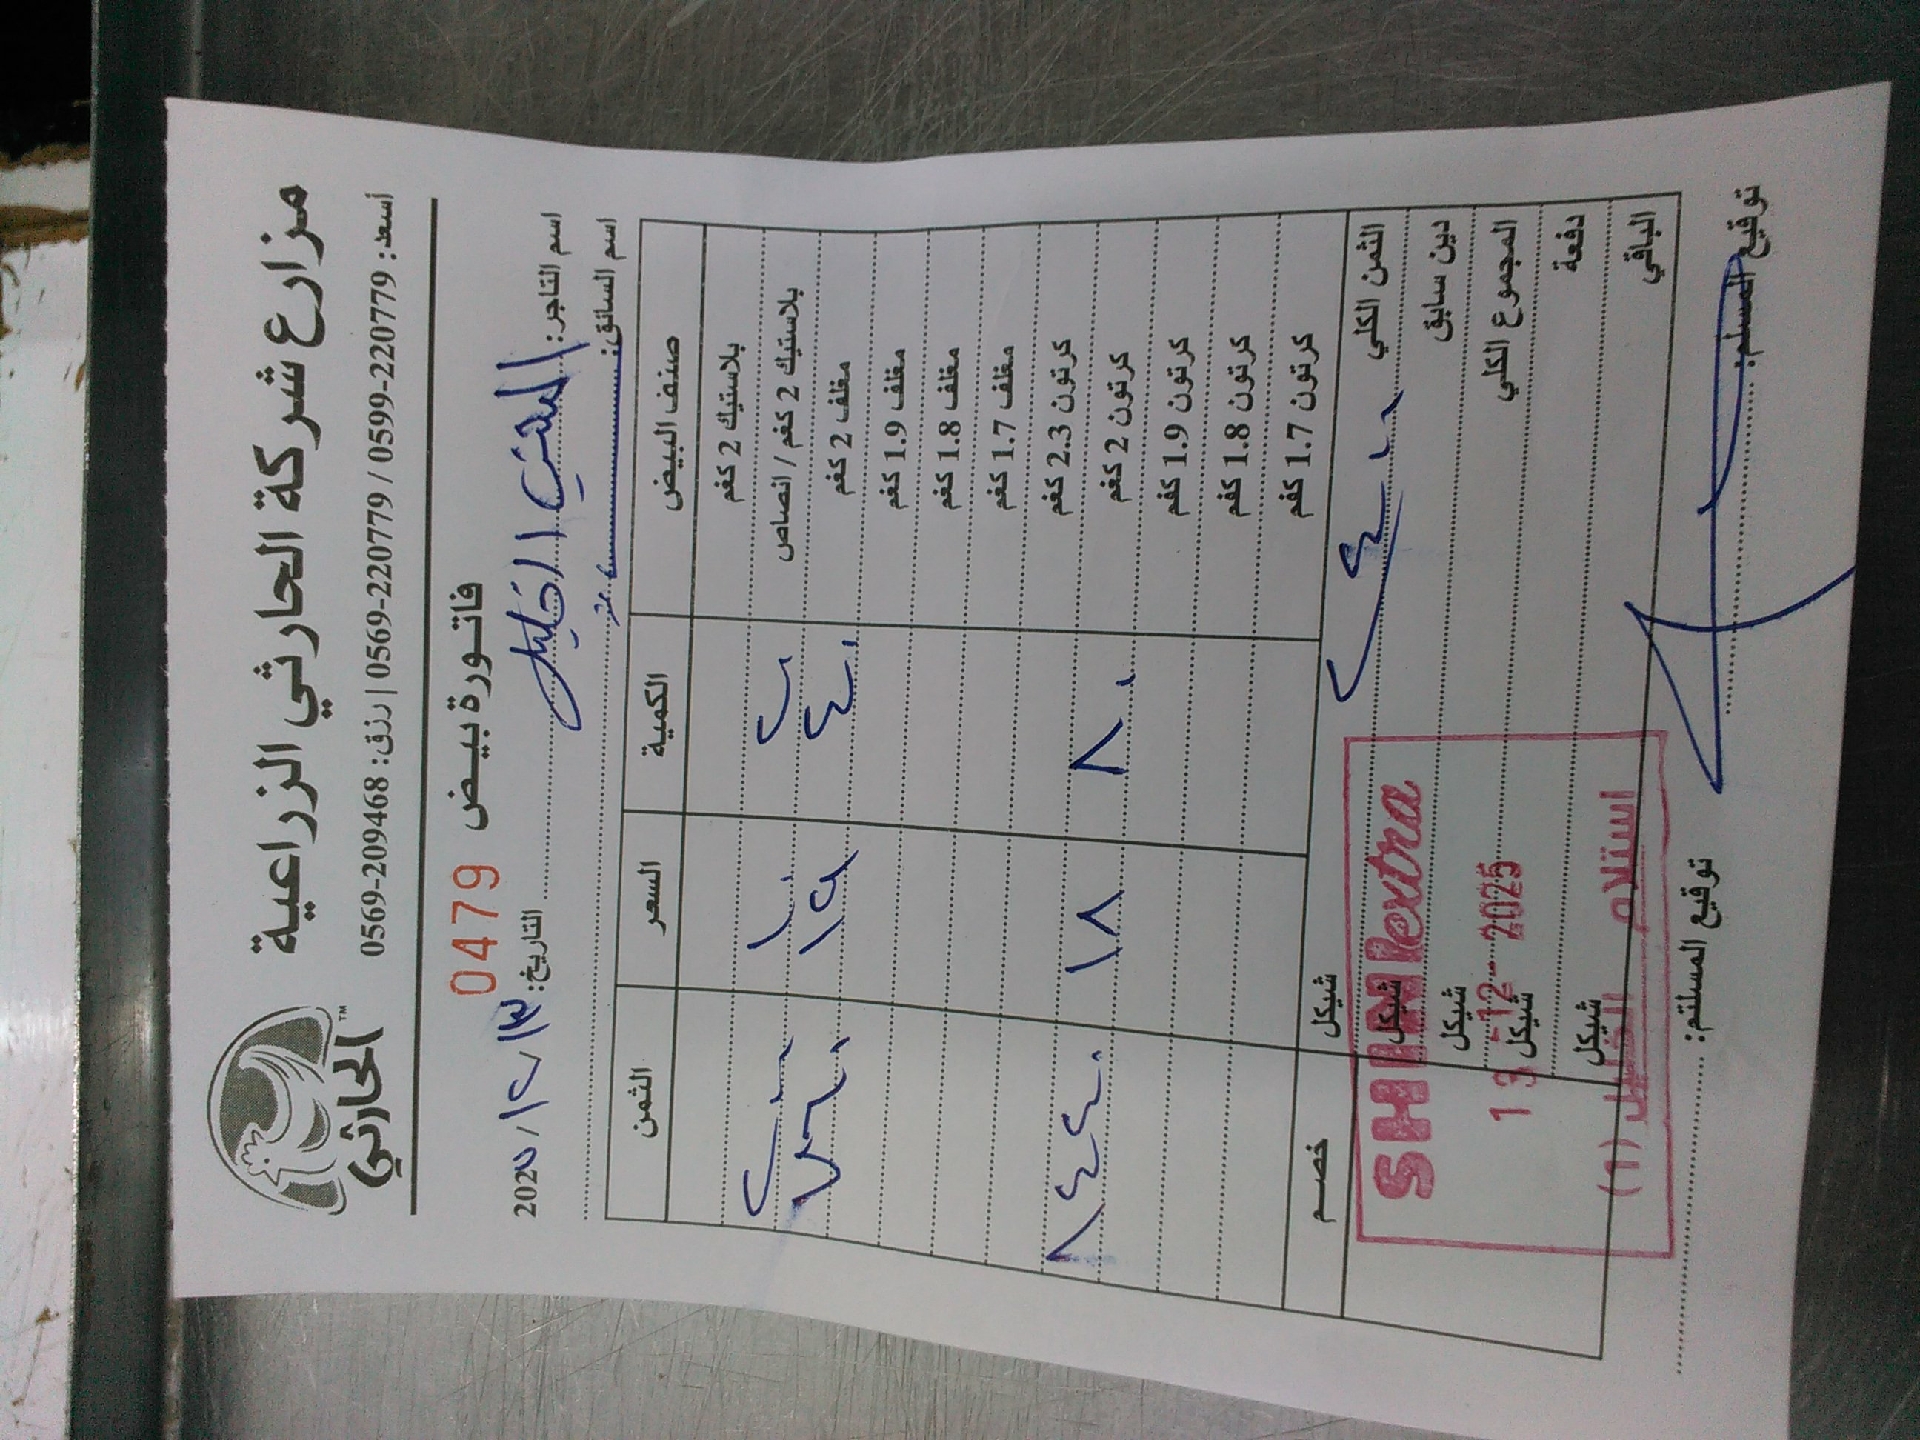 مزارع شركة الحارثي الزراعية
الحارثي ™
أسعد: 0599-220779 / 0569-220779 | رزق: 0569-209468
فاتورة بيض 0479
اسم التاجر: الشني الخليل التاريخ: ١٣/١٢/202٥
اسم السائق:
صنف البيض الكمية السعر الثمن
بلاستيك 2 كغم
بلاستيك 2 كغم / انصاص ٢٠ ١٠ ٢٠٠
مغلف 2 كغم ٤٠ ١٩ ٧٦٠
مغلف 1.9 كغم
مغلف 1.8 كغم
مغلف 1.7 كغم
كرتون 2.3 كغم
كرتون 2 كغم ٨٠ ١٨ ١٤٤٠
كرتون 1.9 كغم
كرتون 1.8 كغم
كرتون 1.7 كغم
الثمن الكلي ٢٤٠٠ شيكل خصم
دين سابق شيكل
المجموع الكلي شيكل
دفعة شيكل
الباقي شيكل
SHINIextra
13-12-2025
استلام الخليل (1)
توقيع المسلم: توقيع المستلم: